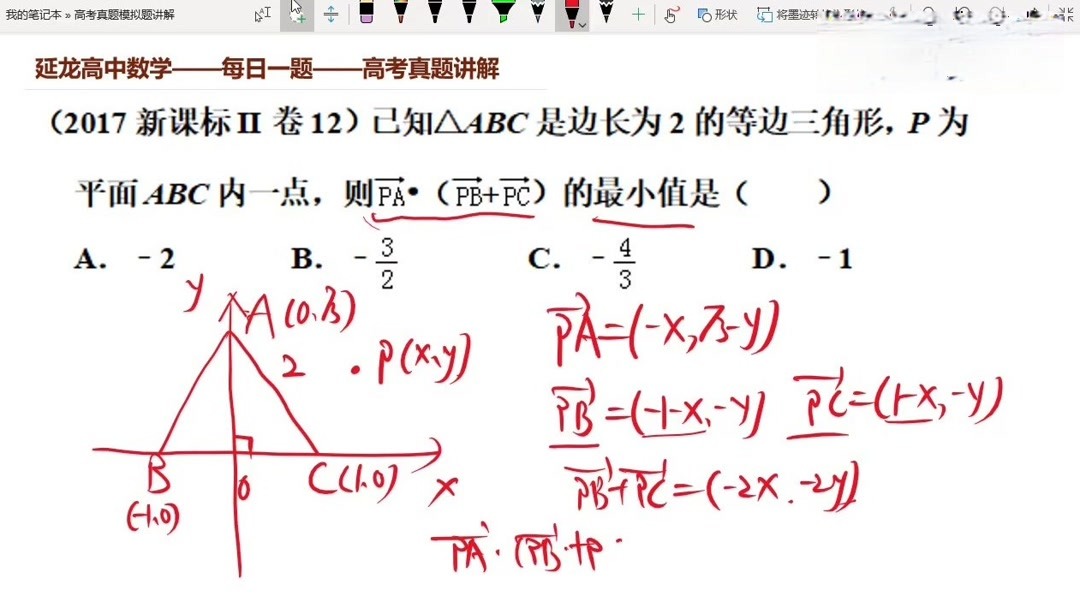 我的笔记本 » 高考真题模拟题讲解
形状
将墨迹转
延龙高中数学——每日一题——高考真题讲解
（2017 新课标 II 卷 12）已知△ABC 是边长为 2 的等边三角形，P 为
平面 ABC 内一点，则PA•（PB+PC）的最小值是（　　）
A. -2 B. -3/2 C. -4/3 D. -1
y
A(0,√3)
2
P(x,y)
B
(-1,0)
0
C(1,0)
x
PA=(-x,√3-y)
PB=(-1-x,-y) PC=(1-x,-y)
PB+PC=(-2x,-2y)
PA·(PB+P